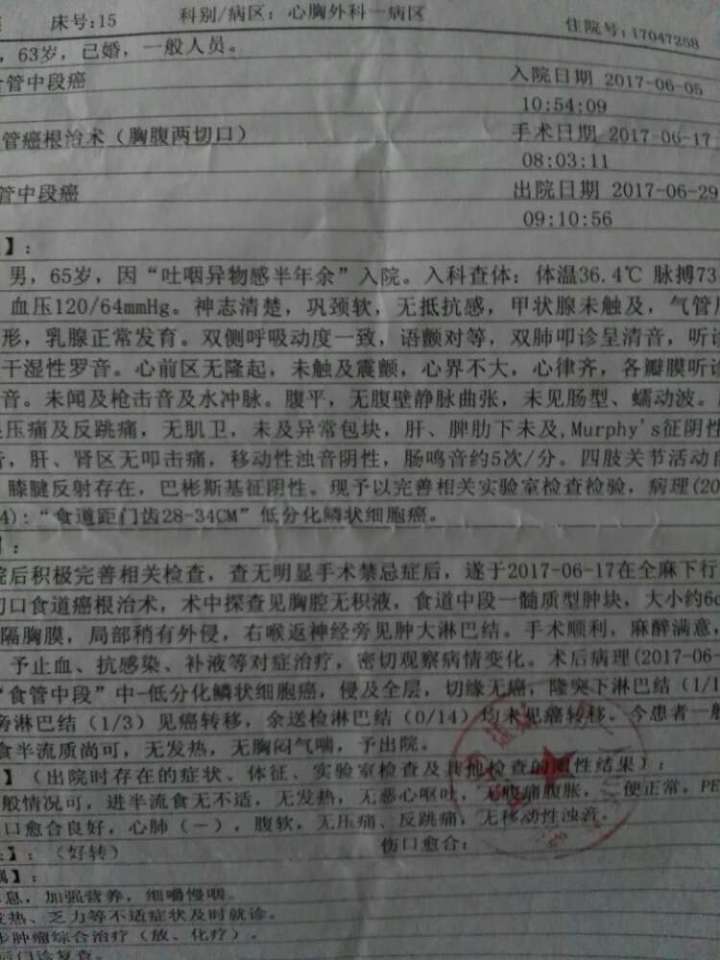 床号:15 科别/病区：心胸外科一病区 住院号:17047258
，63岁，已婚，一般人员。
食管中段癌 入院日期 2017-06-05
10:54:09
管癌根治术（胸腹两切口） 手术日期 2017-06-17
08:03:11
管中段癌 出院日期 2017-06-29
09:10:56
】：
男，65岁，因“吐咽异物感半年余”入院。入科查体：体温36.4℃ 脉搏73
血压120/64mmHg。神志清楚，巩颈软，无抵抗感，甲状腺未触及，气管
形，乳腺正常发育。双侧呼吸动度一致，语颤对等，双肺叩诊呈清音，听诊
干湿性罗音。心前区无隆起，未触及震颤，心界不大，心律齐，各瓣膜听诊
音。未闻及枪击音及水冲脉。腹平，无腹壁静脉曲张，未见肠型、蠕动波。
压痛及反跳痛，无肌卫，未及异常包块，肝、脾肋下未及,Murphy's征阴性
，肝、肾区无叩击痛，移动性浊音阴性，肠鸣音约5次/分。四肢关节活动自
膝腱反射存在，巴彬斯基征阴性。现予以完善相关实验室检查检验，病理(20
4)：“食道距门齿28-34CM”低分化鳞状细胞癌。
】：
院后积极完善相关检查，查无明显手术禁忌症后，遂于2017-06-17在全麻下行
切口食道癌根治术，术中探查见胸腔无积液，食道中段一髓质型肿块，大小约6c
隔胸膜，局部稍有外侵，右喉返神经旁见肿大淋巴结。手术顺利，麻醉满意，
予止血、抗感染、补液等对症治疗，密切观察病情变化。术后病理(2017-06-
“食管中段”中-低分化鳞状细胞癌，侵及全层，切缘无癌，隆突下淋巴结（1/1
旁淋巴结（1/3）见癌转移，余送检淋巴结（0/14）均未见癌转移。今患者一般
食半流质尚可，无发热，无胸闷气喘，予出院。
】（出院时存在的症状、体征、实验室检查及其他检查的阳性结果）：
般情况可，进半流食无不适，无发热，无恶心呕吐，无腹痛腹胀，二便正常。PE
口愈合良好，心肺（－），腹软，无压痛、反跳痛，无移动性浊音。
】：（好转） 伤口愈合：
】：
息，加强营养，细嚼慢咽。
发热、乏力等不适症状及时就诊。
步肿瘤综合治疗（放、化疗）。
后门诊复查。